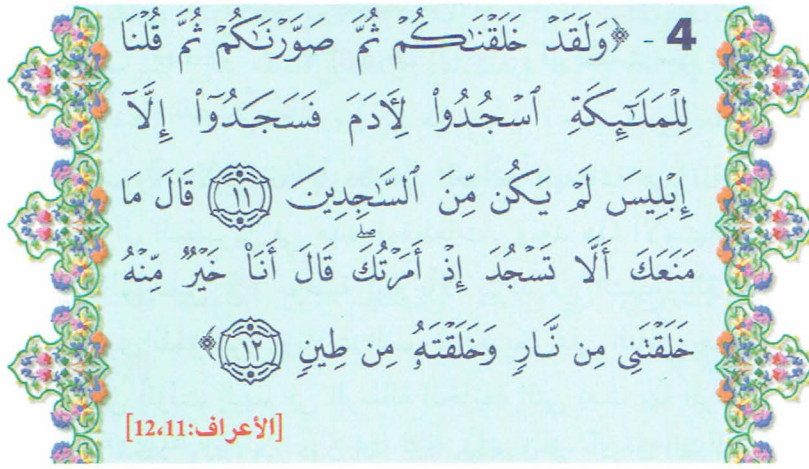 4 - ﴿وَلَقَدْ خَلَقْنَٰكُمْ ثُمَّ صَوَّرْنَٰكُمْ ثُمَّ قُلْنَا
لِلْمَلَٰٓئِكَةِ ٱسْجُدُوا۟ لِأَدَمَ فَسَجَدُوٓا۟ إِلَّآ
إِبْلِيسَ لَمْ يَكُن مِّنَ ٱلسَّٰجِدِينَ ۝١١ قَالَ مَا
مَنَعَكَ أَلَّا تَسْجُدَ إِذْ أَمَرْتُكَ ۖ قَالَ أَنَا۠ خَيْرٌ مِّنْهُ
خَلَقْتَنِى مِن نَّارٍ وَخَلَقْتَهُۥ مِن طِينٍ ۝١٢﴾
[الأعراف:12،11]